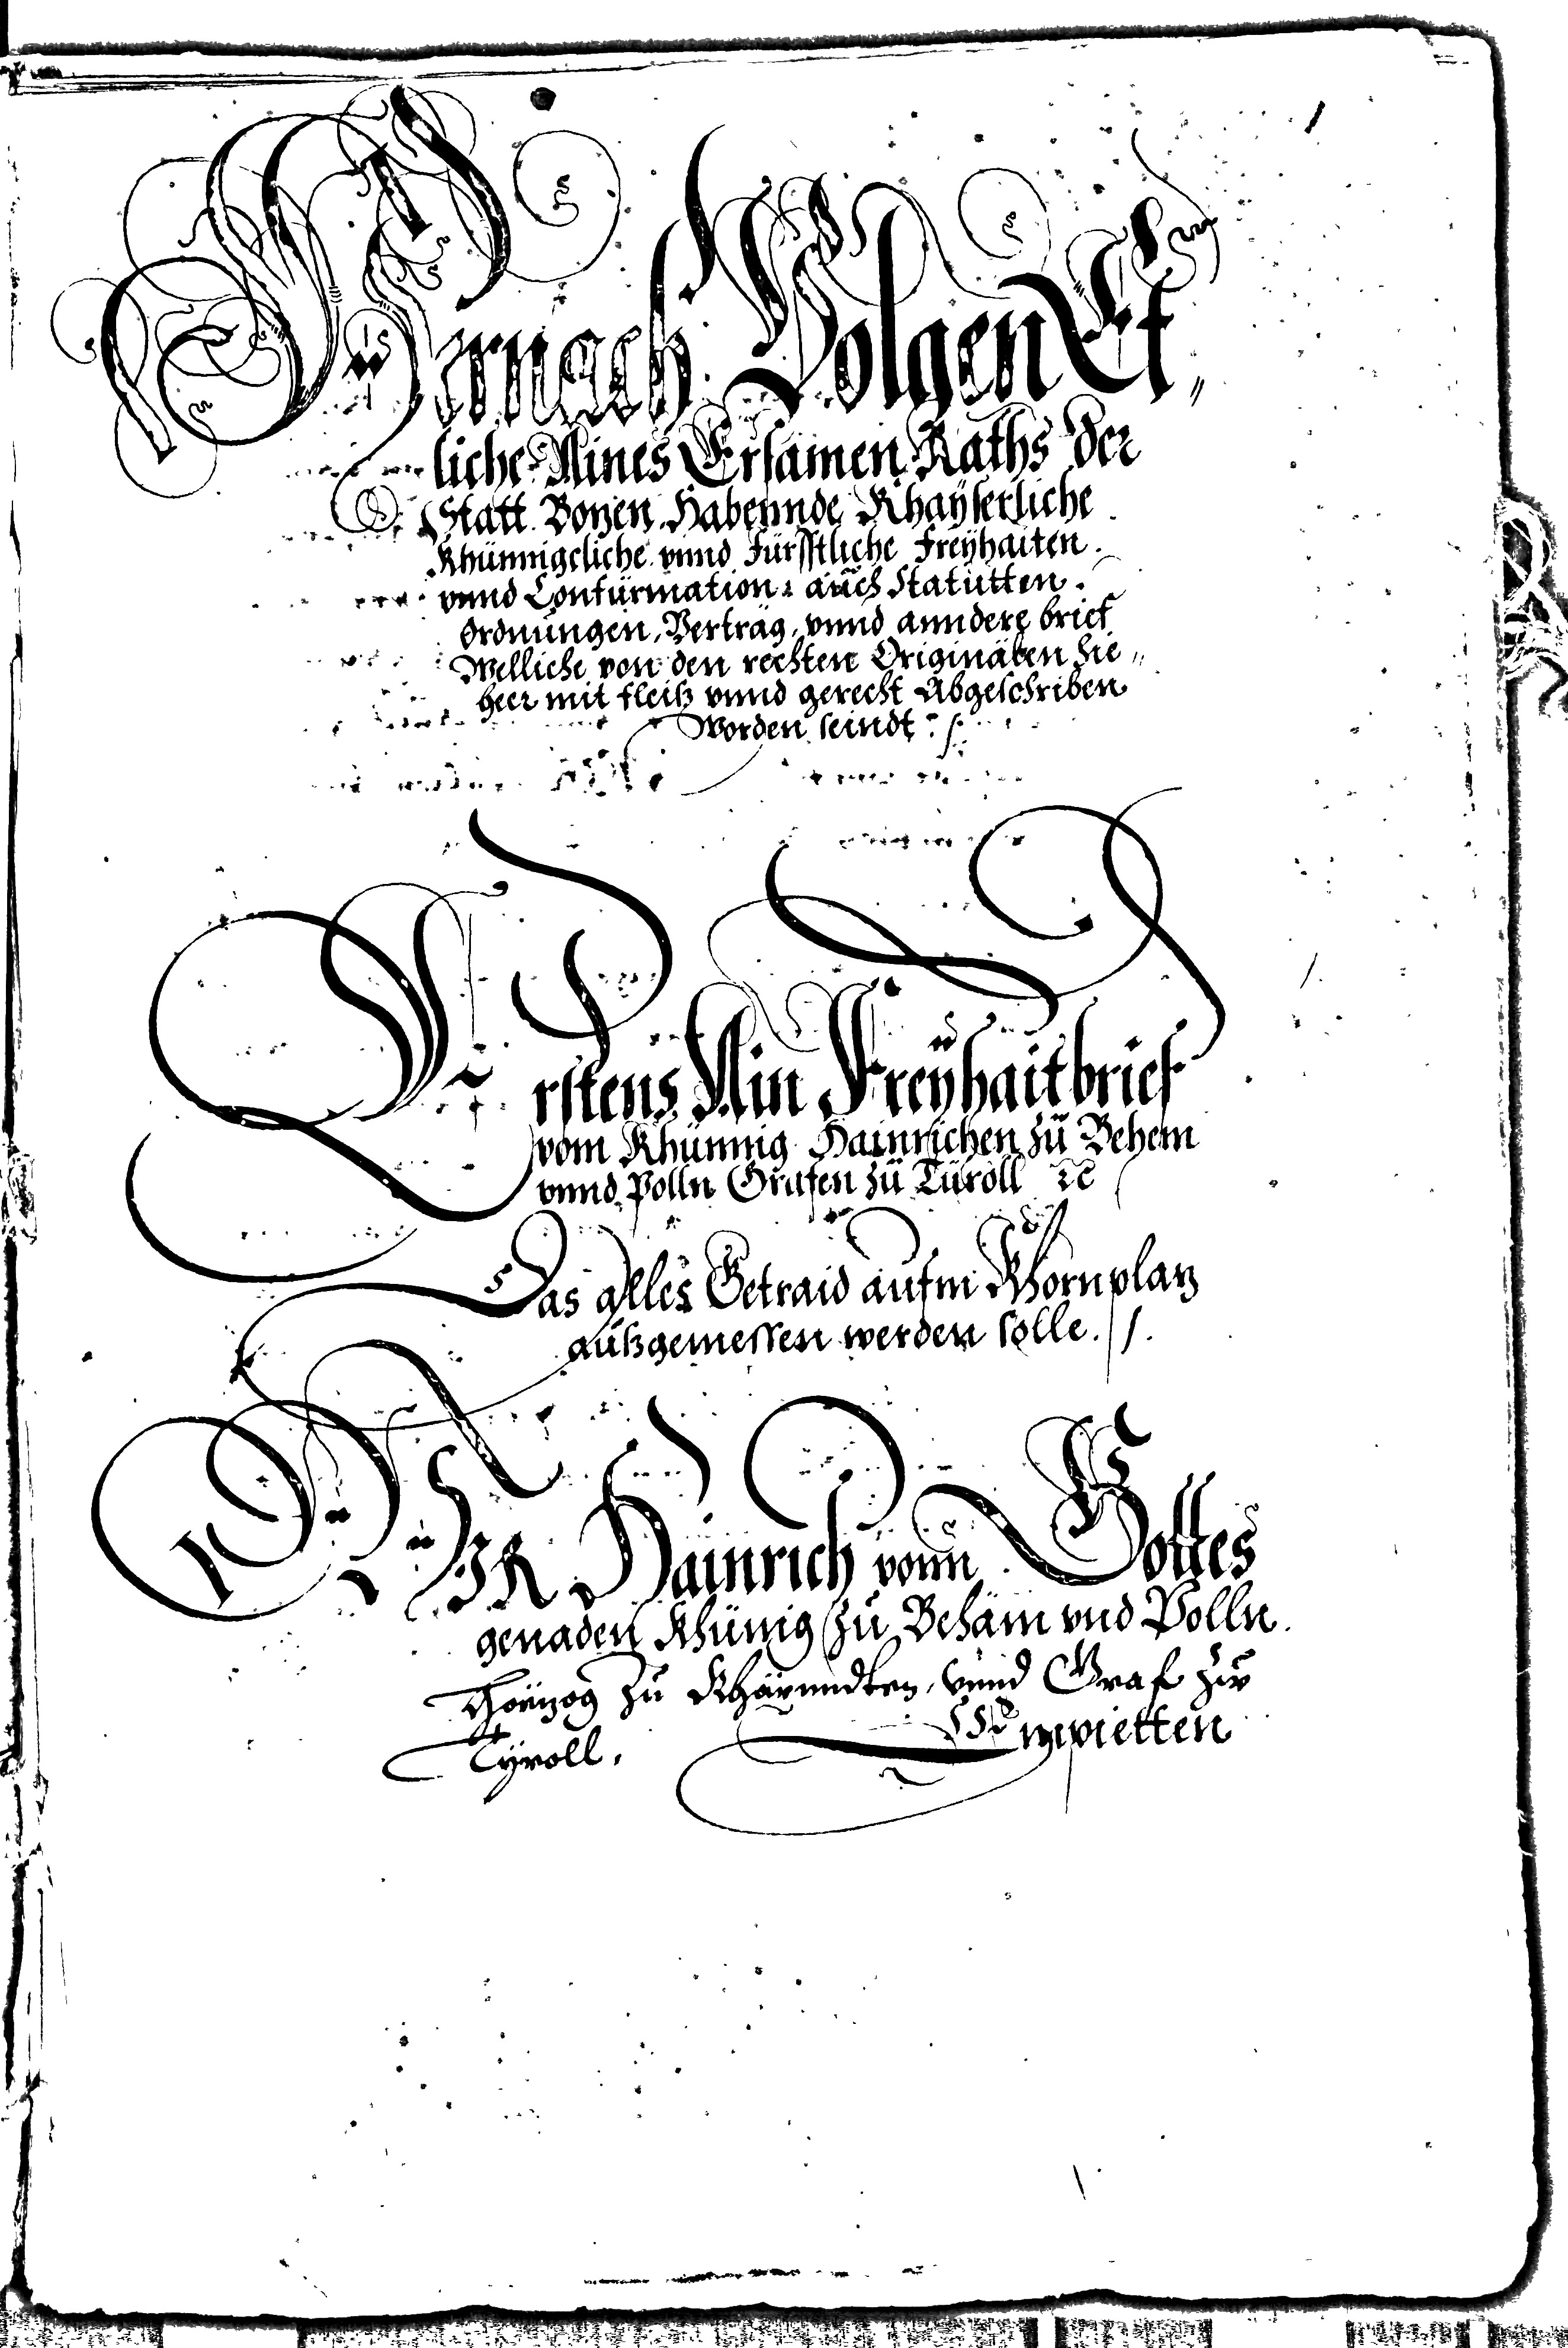 Hernach Volgen Et„
liche Aines Ersamen Raths der
Statt Bozen Habennde Khayserliche
Khünnigcliche vnnd Fürsstliche Freyhaiten.
vnnd Confürmation: auch Statutten.
Ordnungen, Verträg, vnnd anndere brief
Welliche von den rechten Originalen hie„
heer mit fleiß vnnd gerecht Abgeschriben
Worden seindt ./.
Erstens Ain Freyhait brief
vom Khünnig Hainrichen zu Behem
vnnd Polln Grafen zu Türoll ec
Das alles Getraid aufm Khornplaz
außgemessen werden solle. /.
WIR Hainrich vonn Gottes
genaden Khünig zu Behäm vnd Polln.
Hörzog zu Khärnndten, vnnd Graf zu
Tyroll,
Empietten